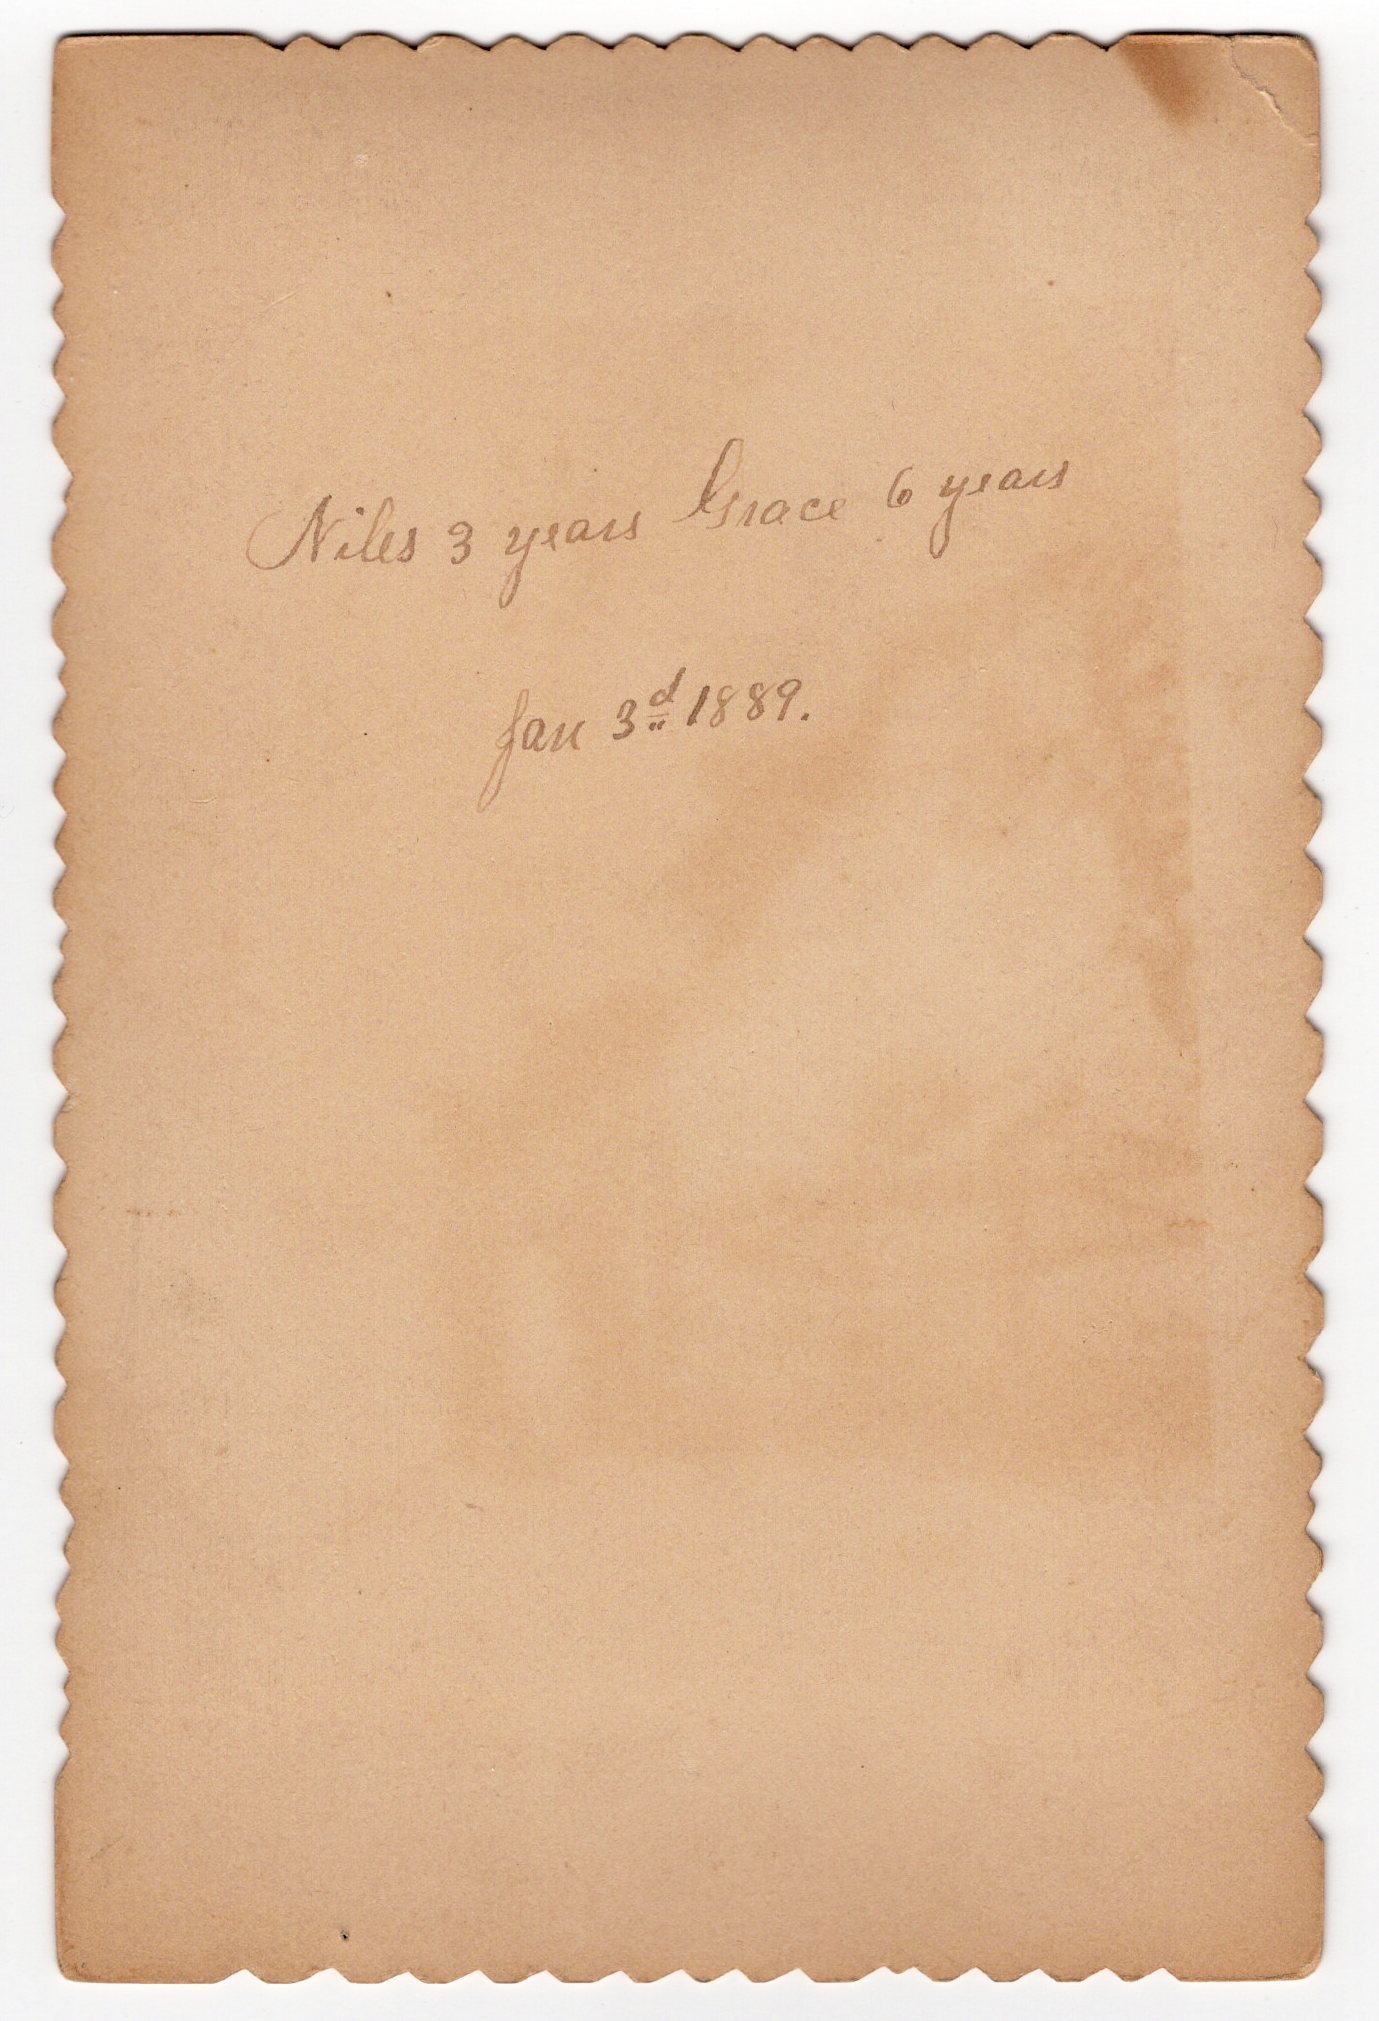 Niles 3 years Grace 6 years
Jan 3d 1889.